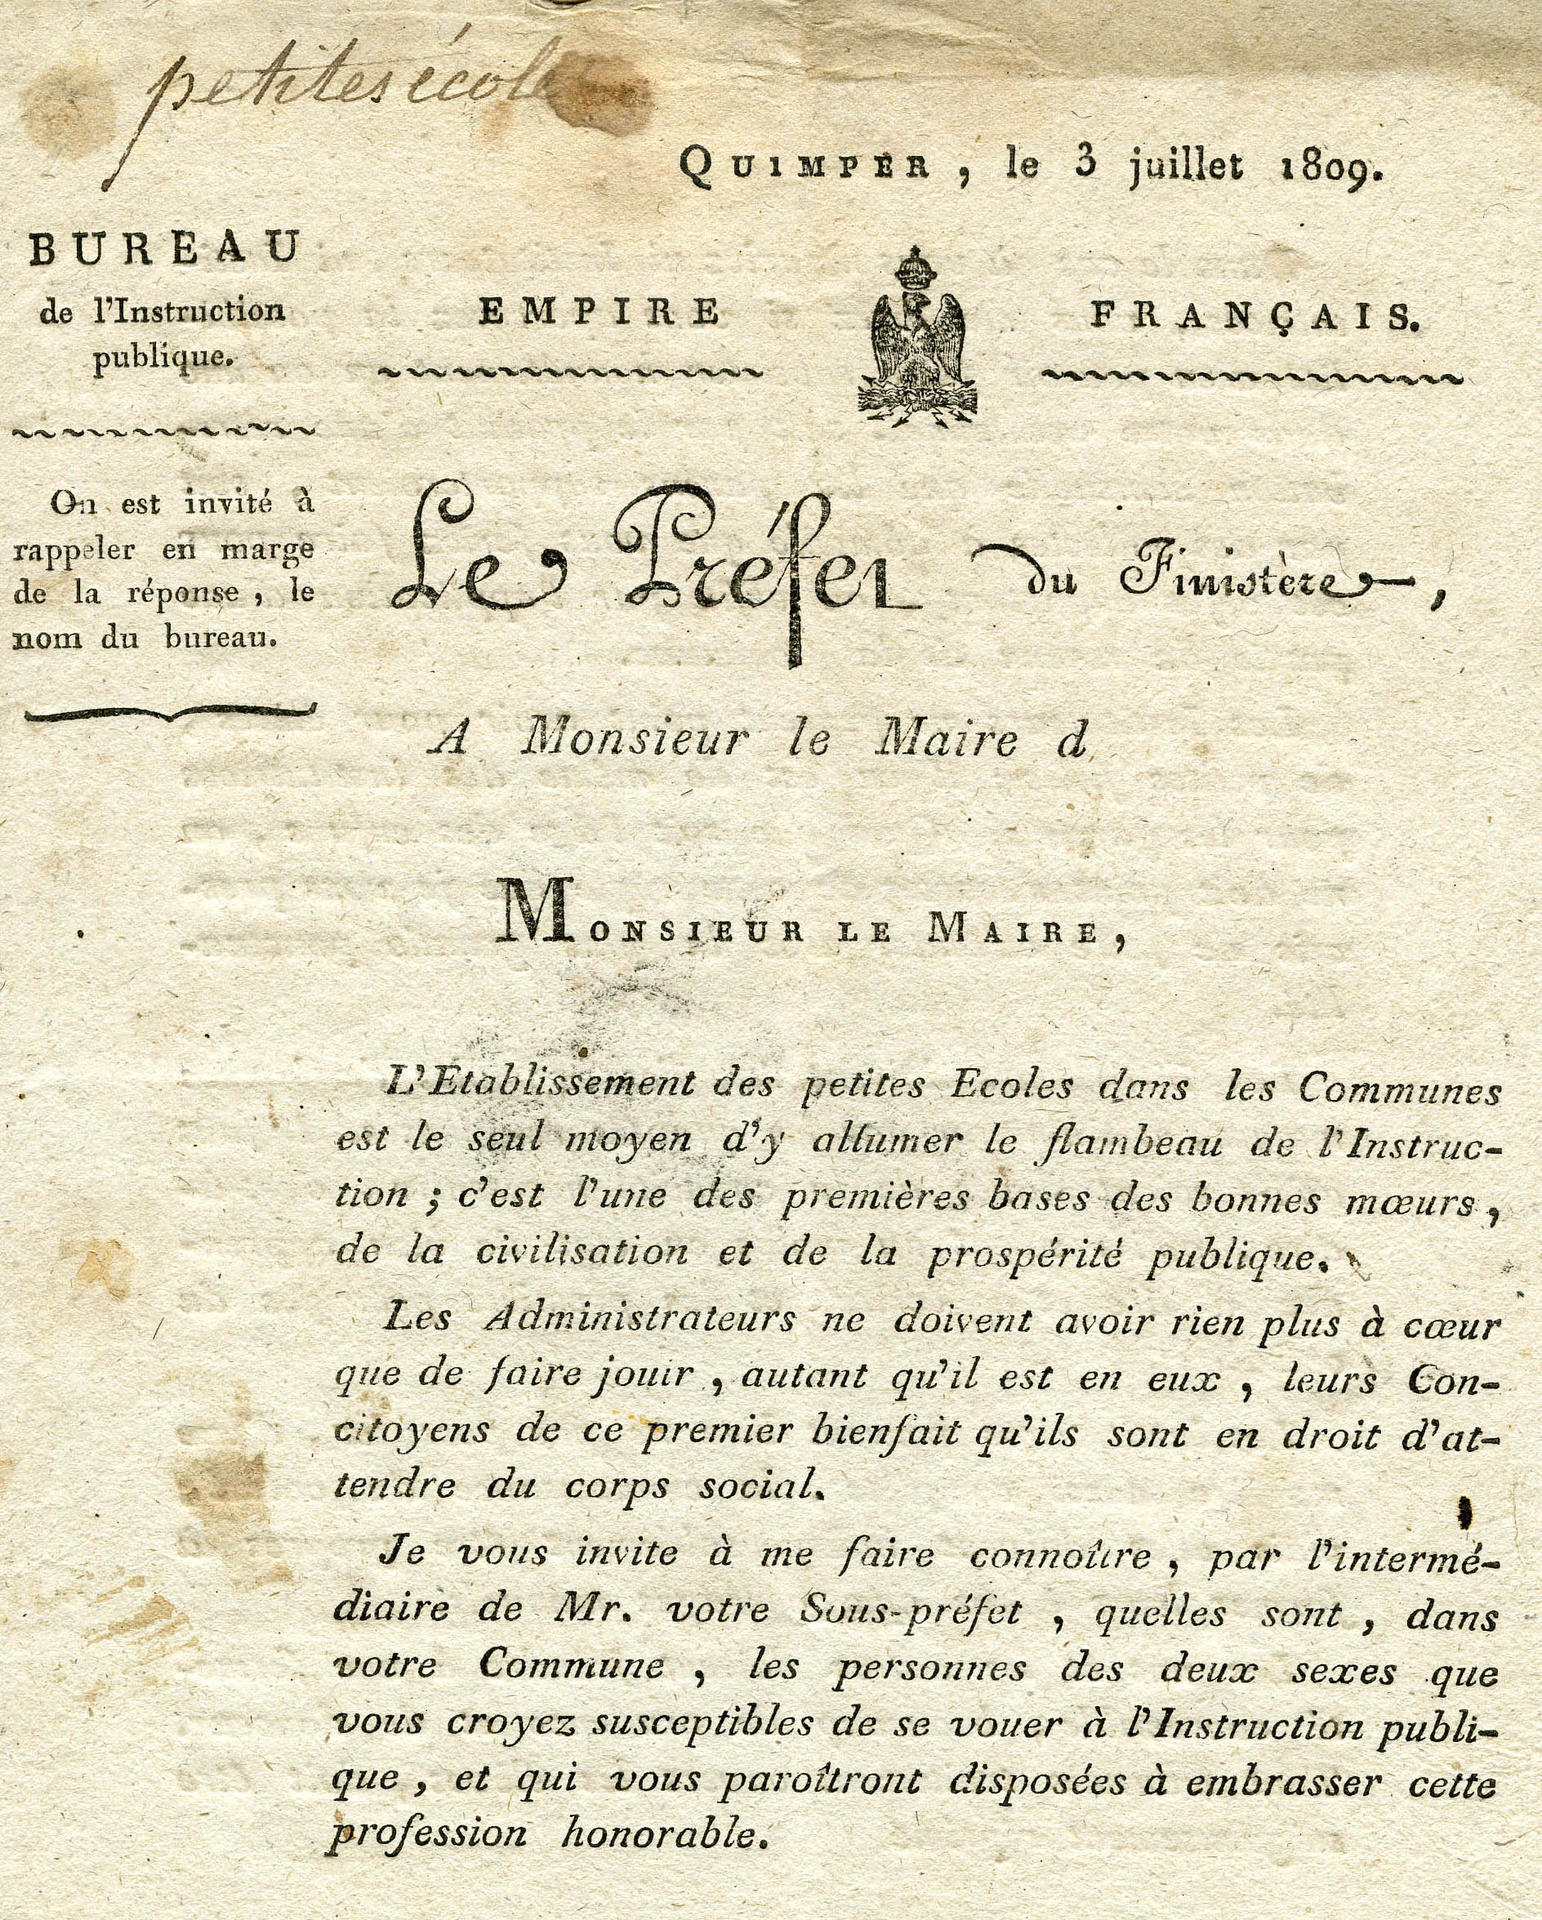 petites écoles
QUIMPER, le 3 juillet 1809.
BUREAU
de l'Instruction
publique.
EMPIRE FRANÇAIS.
On est invité à
rappeler en marge
de la réponse, le
nom du bureau.
Le Préfet du Finistère,
A Monsieur le Maire d
MONSIEUR LE MAIRE,
L'Etablissement des petites Ecoles dans les Communes
est le seul moyen d'y allumer le flambeau de l'Instruc-
tion ; c'est l'une des premières bases des bonnes mœurs,
de la civilisation et de la prospérité publique.
Les Administrateurs ne doivent avoir rien plus à cœur
que de faire jouir, autant qu'il est en eux, leurs Con-
citoyens de ce premier bienfait qu'ils sont en droit d'at-
tendre du corps social.
Je vous invite à me faire connoître, par l'intermé-
diaire de Mr. votre Sous-préfet, quelles sont, dans
votre Commune, les personnes des deux sexes que
vous croyez susceptibles de se vouer à l'Instruction publi-
que, et qui vous paroîtront disposées à embrasser cette
profession honorable.